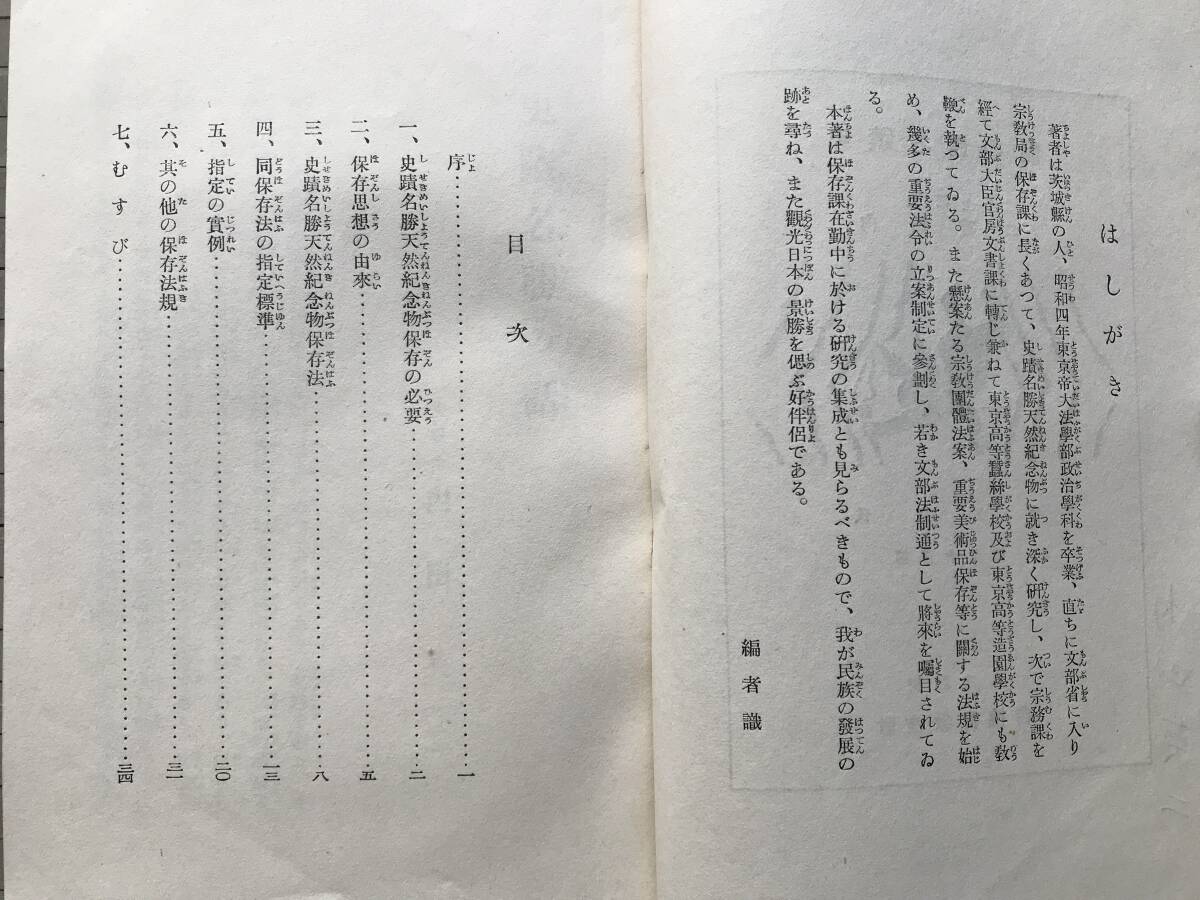 はしがき
著者は茨城縣の人、昭和四年東京帝大法學部政治學科を卒業、直ちに文部省に入り
宗敎局の保存課に長くあつて、史蹟名勝天然紀念物に就き深く硏究し、次で宗務課を
經て文部大臣官房文書課に轉じ兼ねて東京高等蠶絲學校及び東京高等造園學校にも敎
鞭を執つてゐる。また懸案たる宗敎團體法案、重要美術品保存等に關する法規を始
め、幾多の重要法令の立案制定に參劃し、若き文部法制通として將來を囑目されてゐ
る。
本著は保存課在勤中に於ける硏究の集成とも見らるべきもので、我が民族の發展の
跡を尋ね、また觀光日本の景勝を偲ぶ好伴侶である。
編者識
目次
序…………一
一、史蹟名勝天然紀念物保存の必要…………二
二、保存思想の由來…………五
三、史蹟名勝天然紀念物保存法…………八
四、同保存法の指定標準…………一三
五、指定の實例…………二〇
六、其の他の保存法規…………三一
七、むすび…………三四